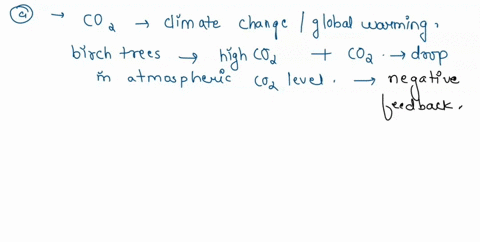 a → CO2 → climate change / global warming.
birch trees → high CO2 + CO2. → drop
in atmospheric CO2 level. → negative
feedback.